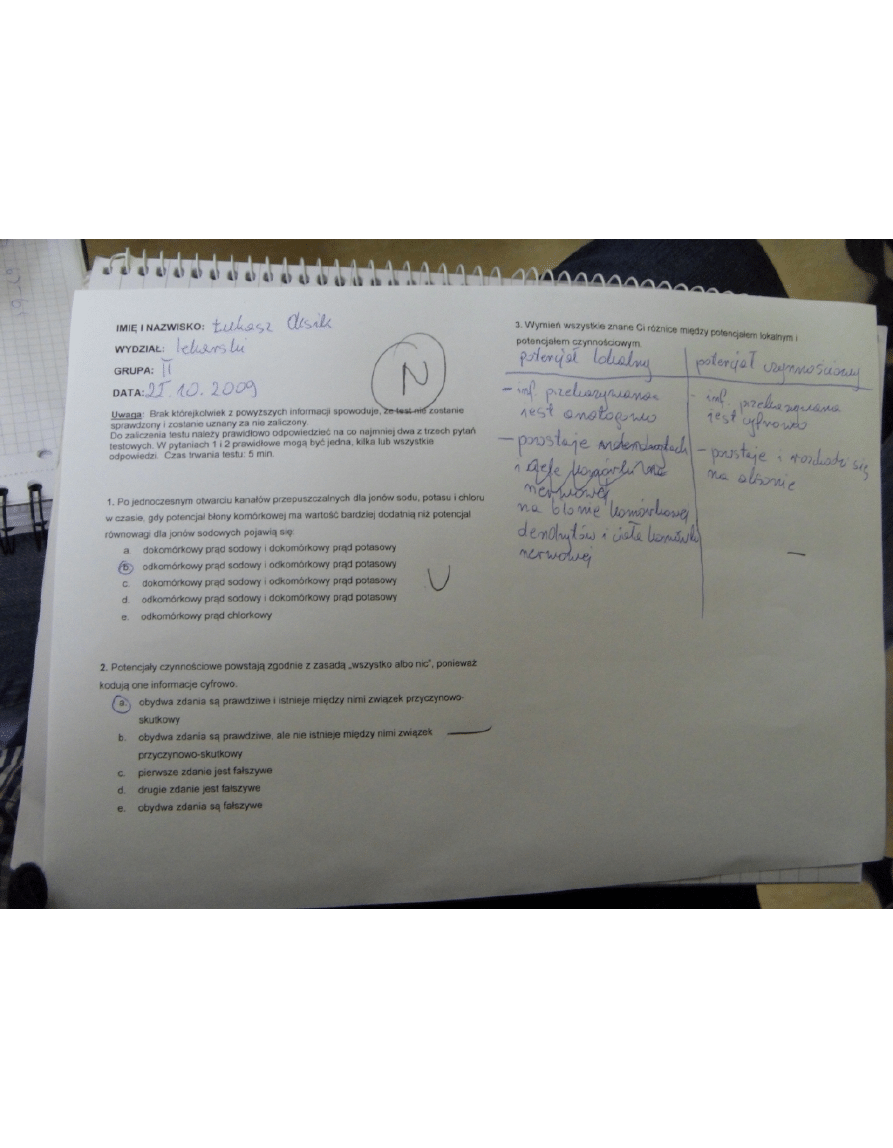 IMIĘ I NAZWISKO: Łukasz
WYDZIAŁ: lekarski
GRUPA: II
DATA: 21.10.2009
N
Uwaga: Brak którejkolwiek z powyższych informacji spowoduje, że test nie zostanie
sprawdzony i zostanie uznany za nie zaliczony.
Do zaliczenia testu należy prawidłowo odpowiedzieć na co najmniej dwa z trzech pytań
testowych. W pytaniach 1 i 2 prawidłowe mogą być jedna, kilka lub wszystkie
odpowiedzi. Czas trwania testu: 5 min.
1. Po jednoczesnym otwarciu kanałów przepuszczalnych dla jonów sodu, potasu i chloru
w czasie, gdy potencjał błony komórkowej ma wartość bardziej dodatnią niż potencjał
równowagi dla jonów sodowych pojawią się:
a. dokomórkowy prąd sodowy i dokomórkowy prąd potasowy
b. odkomórkowy prąd sodowy i odkomórkowy prąd potasowy
c. dokomórkowy prąd sodowy i odkomórkowy prąd potasowy
d. odkomórkowy prąd sodowy i dokomórkowy prąd potasowy
e. odkomórkowy prąd chlorkowy
2. Potencjały czynnościowe powstają zgodnie z zasadą „wszystko albo nic", ponieważ
kodują one informacje cyfrowo.
a. obydwa zdania są prawdziwe i istnieje między nimi związek przyczynowo-
skutkowy
b. obydwa zdania są prawdziwe, ale nie istnieje między nimi związek
przyczynowo-skutkowy
c. pierwsze zdanie jest fałszywe
d. drugie zdanie jest fałszywe
e. obydwa zdania są fałszywe
3. Wymień wszystkie znane Ci różnice między potencjałem lokalnym i
potencjałem czynnościowym.
potencjał lokalny
- inf. przekazywana
jest analogowo
- powstaje
nerwowej
na błonie komórkowej
dendrytów i ciała komórki
nerwowej
potencjał czynnościowy
- inf. przekazywana
jest cyfrowo
- powstaje i rozchodzi się
na aksonie